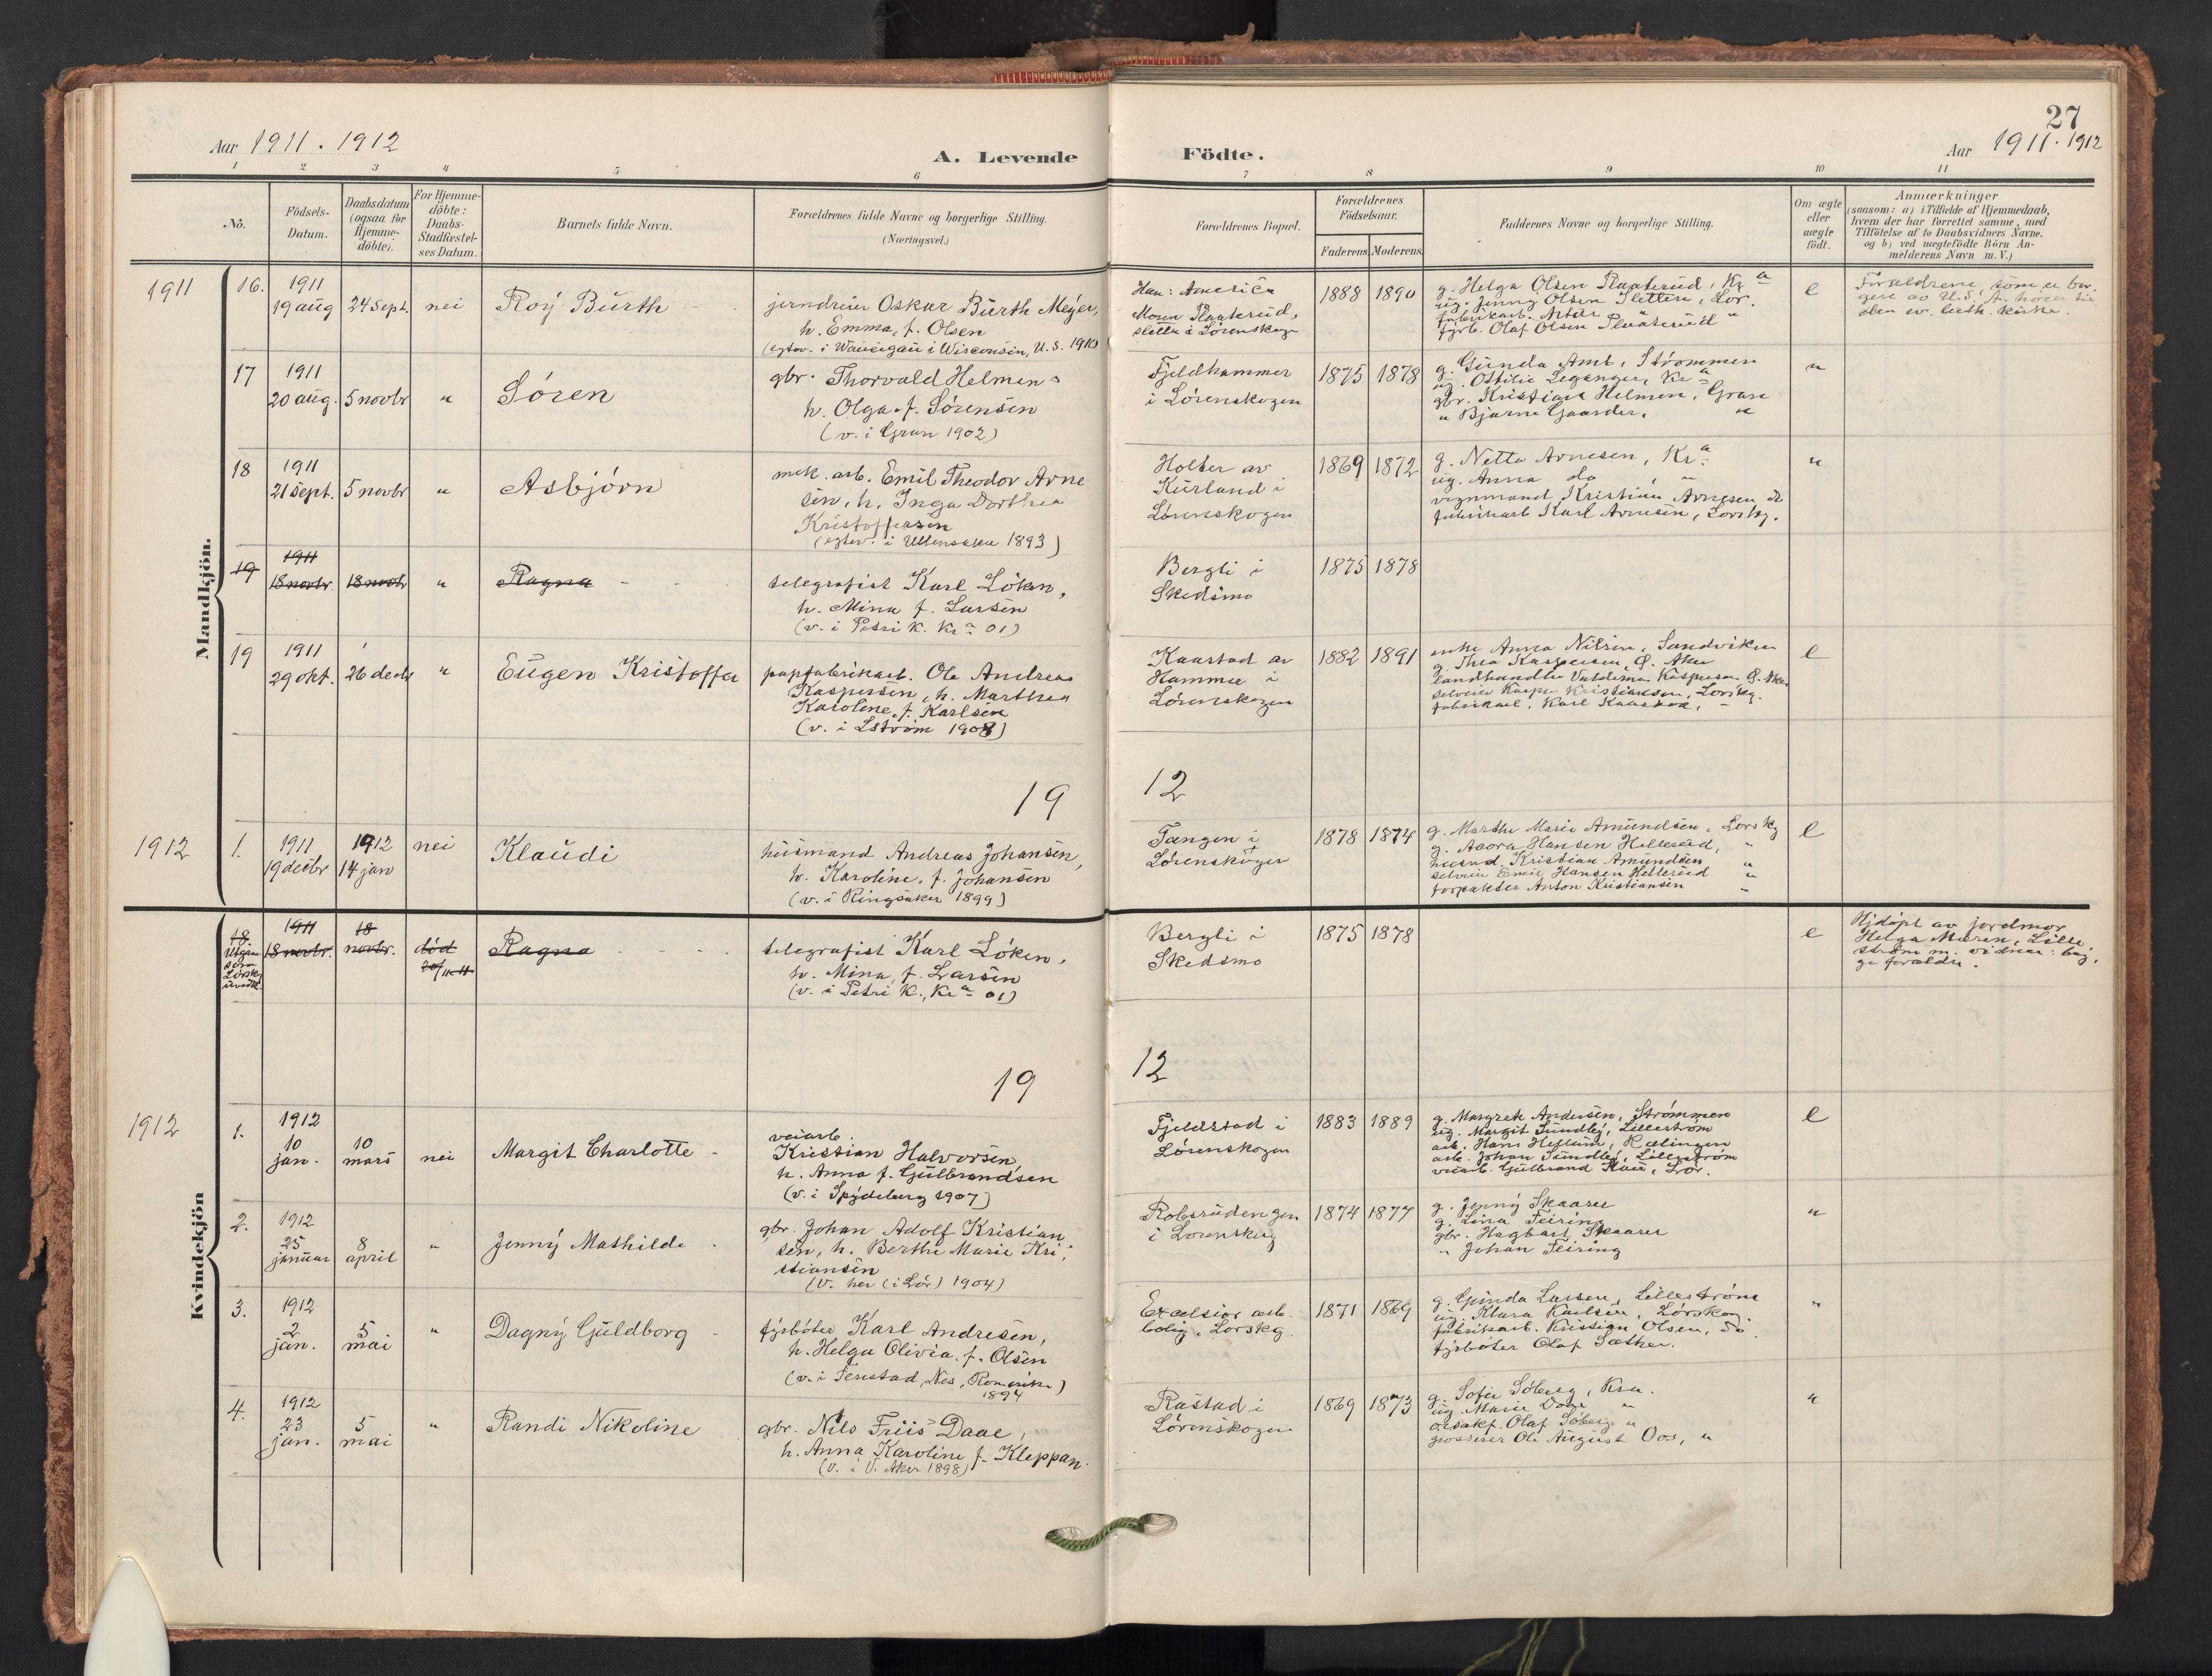 27
Aar 1911. 1912
A. Levende Födte.
Aar 1911. 1912
1 2 3 4 5 6 7 8 9 10 11
No.
Födsels-
Datum.
Daabsdatum
(ogsaa for
Hjemme-
döbte).
For Hjemme-
döbte:
Daabs-
Stadfestel-
ses Datum.
Barnets fulde Navn.
Forældrenes fulde Navne og borgerlige Stilling.
(Næringsvei.)
Forældrenes Bopæl.
Forældrenes
Födselsaar.
Faderens
Moderens
Faddernes Navne og borgerlige Stilling.
Om ægte
eller
uægte
födt.
Anmærkninger
(saasom: a) i Tilfælde af Hjemmedaab,
hvem der har forrettet samme, med
Tilföielse af to Daabsvidners Navne.
og b) ved uægtefödte Börn An-
melderens Navn m. V.)
Mandkjön.
1911
16. 1911
19 aug 24 sept. nei Roy Burth
jerndreier Oskar Burth Meyer,
h. Emma, f. Olsen
(egtev. i i Wisconsin, U. S. 1910
Han: America
Moren Plaaterud,
sletta i Lørenskogen
1888 1890
g. Helga Olsen Plaaterud, Kra
ug. Jenny Olsen Sletten, Lør.
fabrikarb. Artur " "
fyrb. Olaf Olsen Plaaterud
e
Forældrene, som er bor-
gere av U.S. A. hører til
den ev. luth. kirke.
17 1911
20 aug. 5 novbr " Søren
gbr. Thorvald Helmen
h. Olga f. Sørensen
(v. i Gran 1902)
Fjeldhammer
i Lørenskogen
1875 1878
g. Gunda Amb, Strømmen
ug. Ottilie Leganger, Kra
gbr. Kristian Helmen, Gran
" Bjarne Gaarder, "
"
18 1911
21 sept. 5 novbr " Asbjørn
mek. arb. Emil Theodor Arne
sen, h. Inga Dorthea
Kristoffersen
(egtev. i Ullensaker 1893)
Holter av
Kurland i
Lørenskogen
1869 1872
g. Netta Arnesen, Kra
ug. Anna do, "
vognmand Kristian Arnesen do
fabrikarb Karl Arnesen, Lørskg.
"
19 1911
18 novbr 18 novb " Ragna
telegrafist Karl Löken,
h. Mina f. Larsen
(v. i Petri K. Kra 01)
Bergli i
Skedsmo
1875 1878
19 1911
29 okt. 26 decbr " Eugen Kristoffer
papfabrikarb. Ole Andreas
Kaspersen, h. Marthea
Karoline, f. Karlsen
(v. i Lstrøm 1908)
Kaastad av
Hammer i
Lørenskogen
1882 1891
enke Anna Nilsen, Sandviken
g. Thea Kaspersen, Ø. Aker
landhandler Valdemar Kaspersen Ø. Aker
selveier Kasper Kristiansen, Lørskg.
fabrikarb. Karl Kaastad, "
e
19 12
1912
1. 1911 1912
19 decbr 14 jan nei Klaudi
husmand Andreas Johansen,
h. Karoline, f. Johansen
(v. i Ringsaker 1899)
Tangen i
Lørenskogen
1878 1874
g. Marthe Marie Amundsen, Lørskg
g. Hansen Hellerud, "
husmd. Kristian Amundsen "
selveier Emil Hansen Hellerud "
forpakter Anton Kristiansen "
e
Kvindekjön
18 1911 18
Utgaar
som
Lørsk.
uvedk.
18 novbr. novbr. död
20/11-11
Ragna
telegrafist Karl Löken,
h. Mina, f. Larsen
(v. i Petri K., Kra 01)
Bergli i
Skedsmo
1875 1878
e
Hjdöpt av jordmor
Helga Moren, Lille-
strøm m. vidner: beg-
ge forældre.
19 12
1912
1. 1912
10 jan. 10 mars nei Margit Charlotte
veiarb.
Kristian Halvorsen
h. Anna f. Gulbrandsen
(v. i Spydeberg 1907)
Fjeldstad i
Lørenskogen
1883 1889
g. Margrete Andersen, Strømmen
ug. Margit Sundby, Lillestrøm
arb. Hans Heflum, Rælingen
arb. Johan Sundby, Lillestrøm
veiarb. Gulbrand , Lør.
e
2. 1912
25 januar 8 april " Jenny Mathilde
gbr. Johan Adolf Kristian
sen, h. Berthe Marie Kri-
stiansen
(v. her (i Lør) 1904)
Robsrudengen
i Lørenskog
1874 1877
g. Jenny Skaarer
g. Lina Feiring
gbr. Hagbart Skaarer
" Johan Feiring
"
3. 1912
2 jan. 5 mai " Dagny Guldborg
fyrbøter Karl Andresen,
h. Helga Olivia. f. Olsen
(v. i Fenstad, Nes, Romerike)
1894
Excelsior arb.
bolig, Lørskg.
1871 1869
g. Gunda Larsen, Lillestrøm
ug. Klara Karlsen, Lørskog
fabrikarb. Kristian Olsen, do.
fyrbøter Olaf Sæther.
"
4. 1912
23 jan. 5 mai " Randi Nikoline
gbr. Nils Friis Daae,
h. Anna Karoline f. Kleppan.
(v. i V. Aker 1898)
Rastad i
Lørenskogen
1869 1873
g. Sofie Söberg, Kra.
ug. Marie Daae "
Olaf Söberg "
grosserer Ole August Oos, "
"